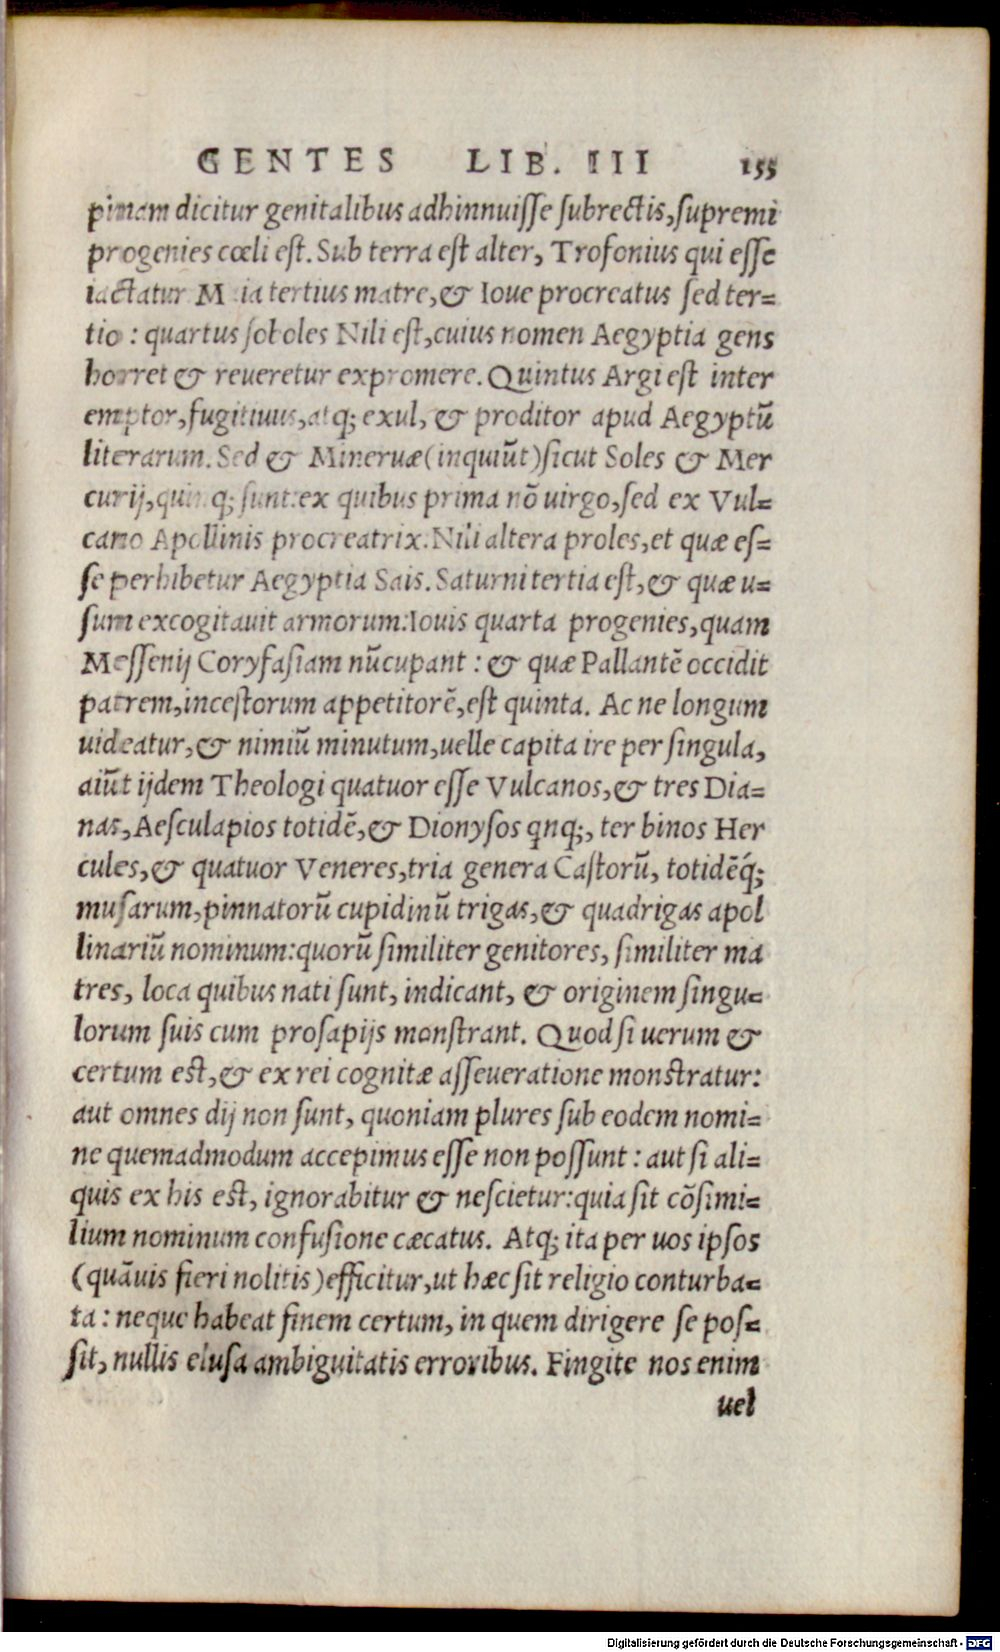 GENTES LIB. III 155
pinam dicitur genitalibus adhinnuiſſe ſubrectis,ſupremi
progenies cœli eſt. Sub terra eſt alter, Trofonius qui eſſe
iactatur Maia tertius matre,& Ioue procreatus ſed ter=
tio : quartus ſoboles Nili eſt,cuius nomen Aegyptia gens
horret & reueretur expromere. Quintus Argi eſt inter
emptor,fugitiuus,atq; exul, & proditor apud Aegyptū
literarum. Sed & Mineruæ(inquiūt)ſicut Soles & Mer
curij,quinq; ſunt:ex quibus prima nō uirgo,ſed ex Vul=
cano Apollinis procreatrix. Nili altera proles,et quæ eſ=
ſe perhibetur Aegyptia Sais. Saturni tertia eſt,& quæ u=
ſum excogitauit armorum:Iouis quarta progenies,quam
Meſſenij Coryfaſiam nūcupant : & quæ Pallantē occidit
patrem,inceſtorum appetitorē,eſt quinta. Ac ne longum
uideatur,& nimiū minutum,uelle capita ire per ſingula,
aiūt ijdem Theologi quatuor eſſe Vulcanos,& tres Dia=
nas,Aeſculapios totidē,& Dionyſos qnq;, ter binos Her
cules,& quatuor Veneres,tria genera Caſtorū, totidēq́;
muſarum,pinnatorū cupidinū trigas,& quadrigas apol
linariū nominum:quorū ſimiliter genitores, ſimiliter ma
tres, loca quibus nati ſunt, indicant, & originem ſingu=
lorum ſuis cum proſapijs monſtrant. Quod ſi uerum &
certum eſt,& ex rei cognitæ aſſeueratione monſtratur:
aut omnes dij non ſunt, quoniam plures ſub eodem nomi=
ne quemadmodum accepimus eſſe non poſſunt : aut ſi ali=
quis ex his eſt, ignorabitur & neſcietur:quia ſit cōſimi=
lium nominum confuſione cæcatus. Atq; ita per uos ipſos
(quāuis fieri nolitis)efficitur,ut hæc ſit religio conturba=
ta : neque habeat finem certum, in quem dirigere ſe poſ=
ſit, nullis eluſa ambiguitatis erroribus. Fingite nos enim
uel
Digitalisierung gefördert durch die Deutsche Forschungsgemeinschaft - DFG